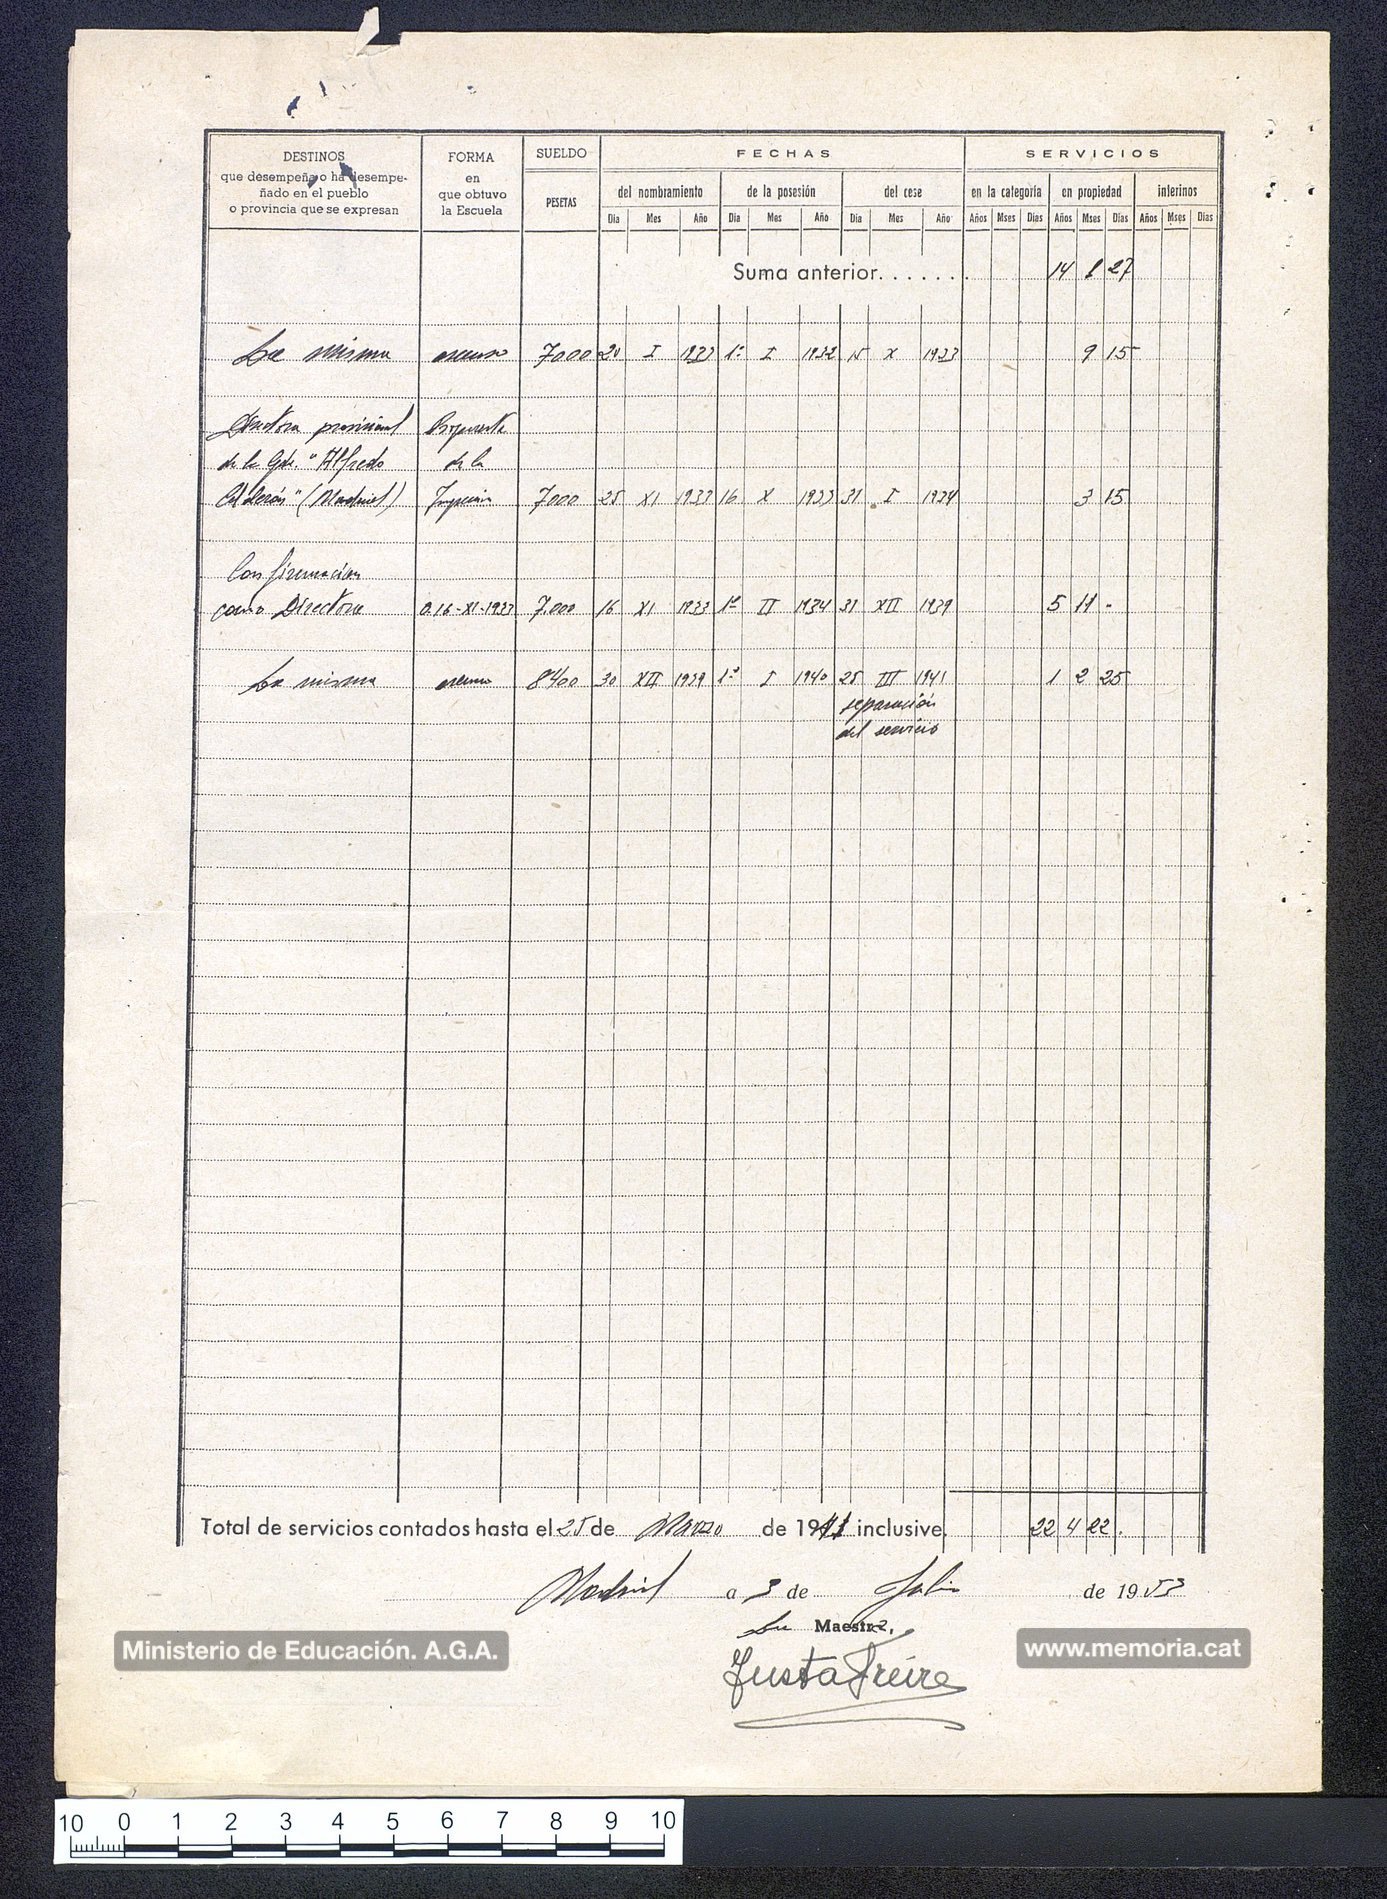 DESTINOS
que desempeña o ha desempe-
ñado en el pueblo
o provincia que se expresan
FORMA
en
que obtuvo
la Escuela
SUELDO
PESETAS
FECHAS
del nombramiento
de la posesión
del cese
Dia Mes Año Dia Mes Año Dia Mes Año
SERVICIOS
en la categoría en propiedad interinos
Años Mses Dias Años Mses Dias Años Mses Dias
Suma anterior....... 14 8 27
La misma ascenso 7000 20 I 1933 1º I 1932 15 X 1933 9 15
Directora provisional Propuesta
de la Gda. "Alfredo de la
Calderón" (Madrid) Inspección 7000 25 XI 1933 16 X 1933 31 I 1934 3 15
Confirmacion
como Directora O.16-XI-1933 7.000 16 XI 1933 1º II 1934 31 XII 1939 5 11 -
La misma ascenso 8400 30 XII 1939 1º I 1940 25 III 1941 1 2 25
separación
del servicio
Total de servicios contados hasta el 25 de Marzo de 1941 inclusive. 22 4 22.
Madrid a 3 de Julio de 1953
La Maestra,
Justa Freire
Ministerio de Educación. A.G.A.
www.memoria.cat
10 0 1 2 3 4 5 6 7 8 9 10